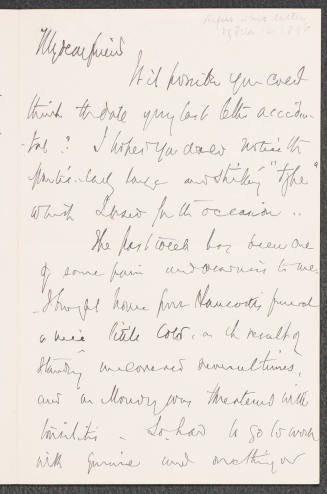 My dear friend
Is it possible you could
think the date of my last letter acciden-
tal? I hoped you would notice the
particularly large and striking "type"
which I used for the occasion ..
The past week has been one
of some pain and weariness to me.
I brought home from Hancock's funeral
a nice little cold, as the result of
standing uncovered several times,
and on Monday was threatened with
tonsilitis - So had to go to work
with quinine and one thing or